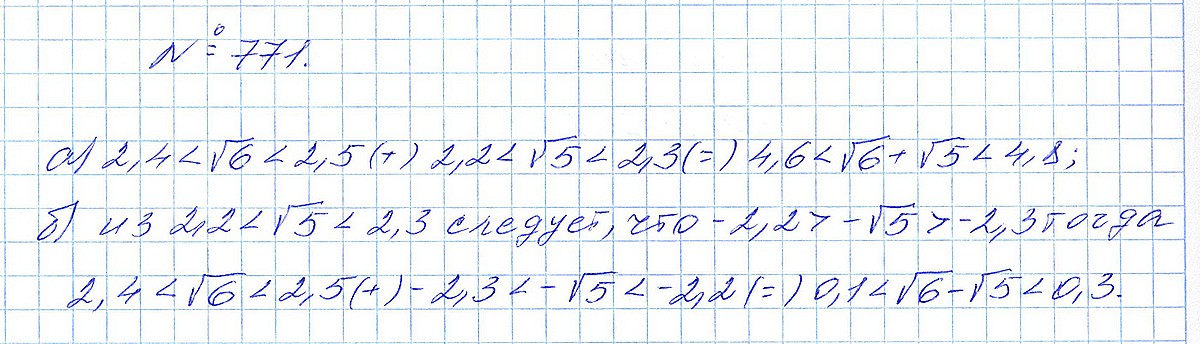 № 771.
а) 2,4 < √6 < 2,5 (+) 2,2 < √5 < 2,3 (=) 4,6 < √6 + √5 < 4,8;
б) из 2,2 < √5 < 2,3 следует, что -2,2 > -√5 > -2,3 тогда
2,4 < √6 < 2,5 (+) -2,3 < -√5 < -2,2 (=) 0,1 < √6 - √5 < 0,3.